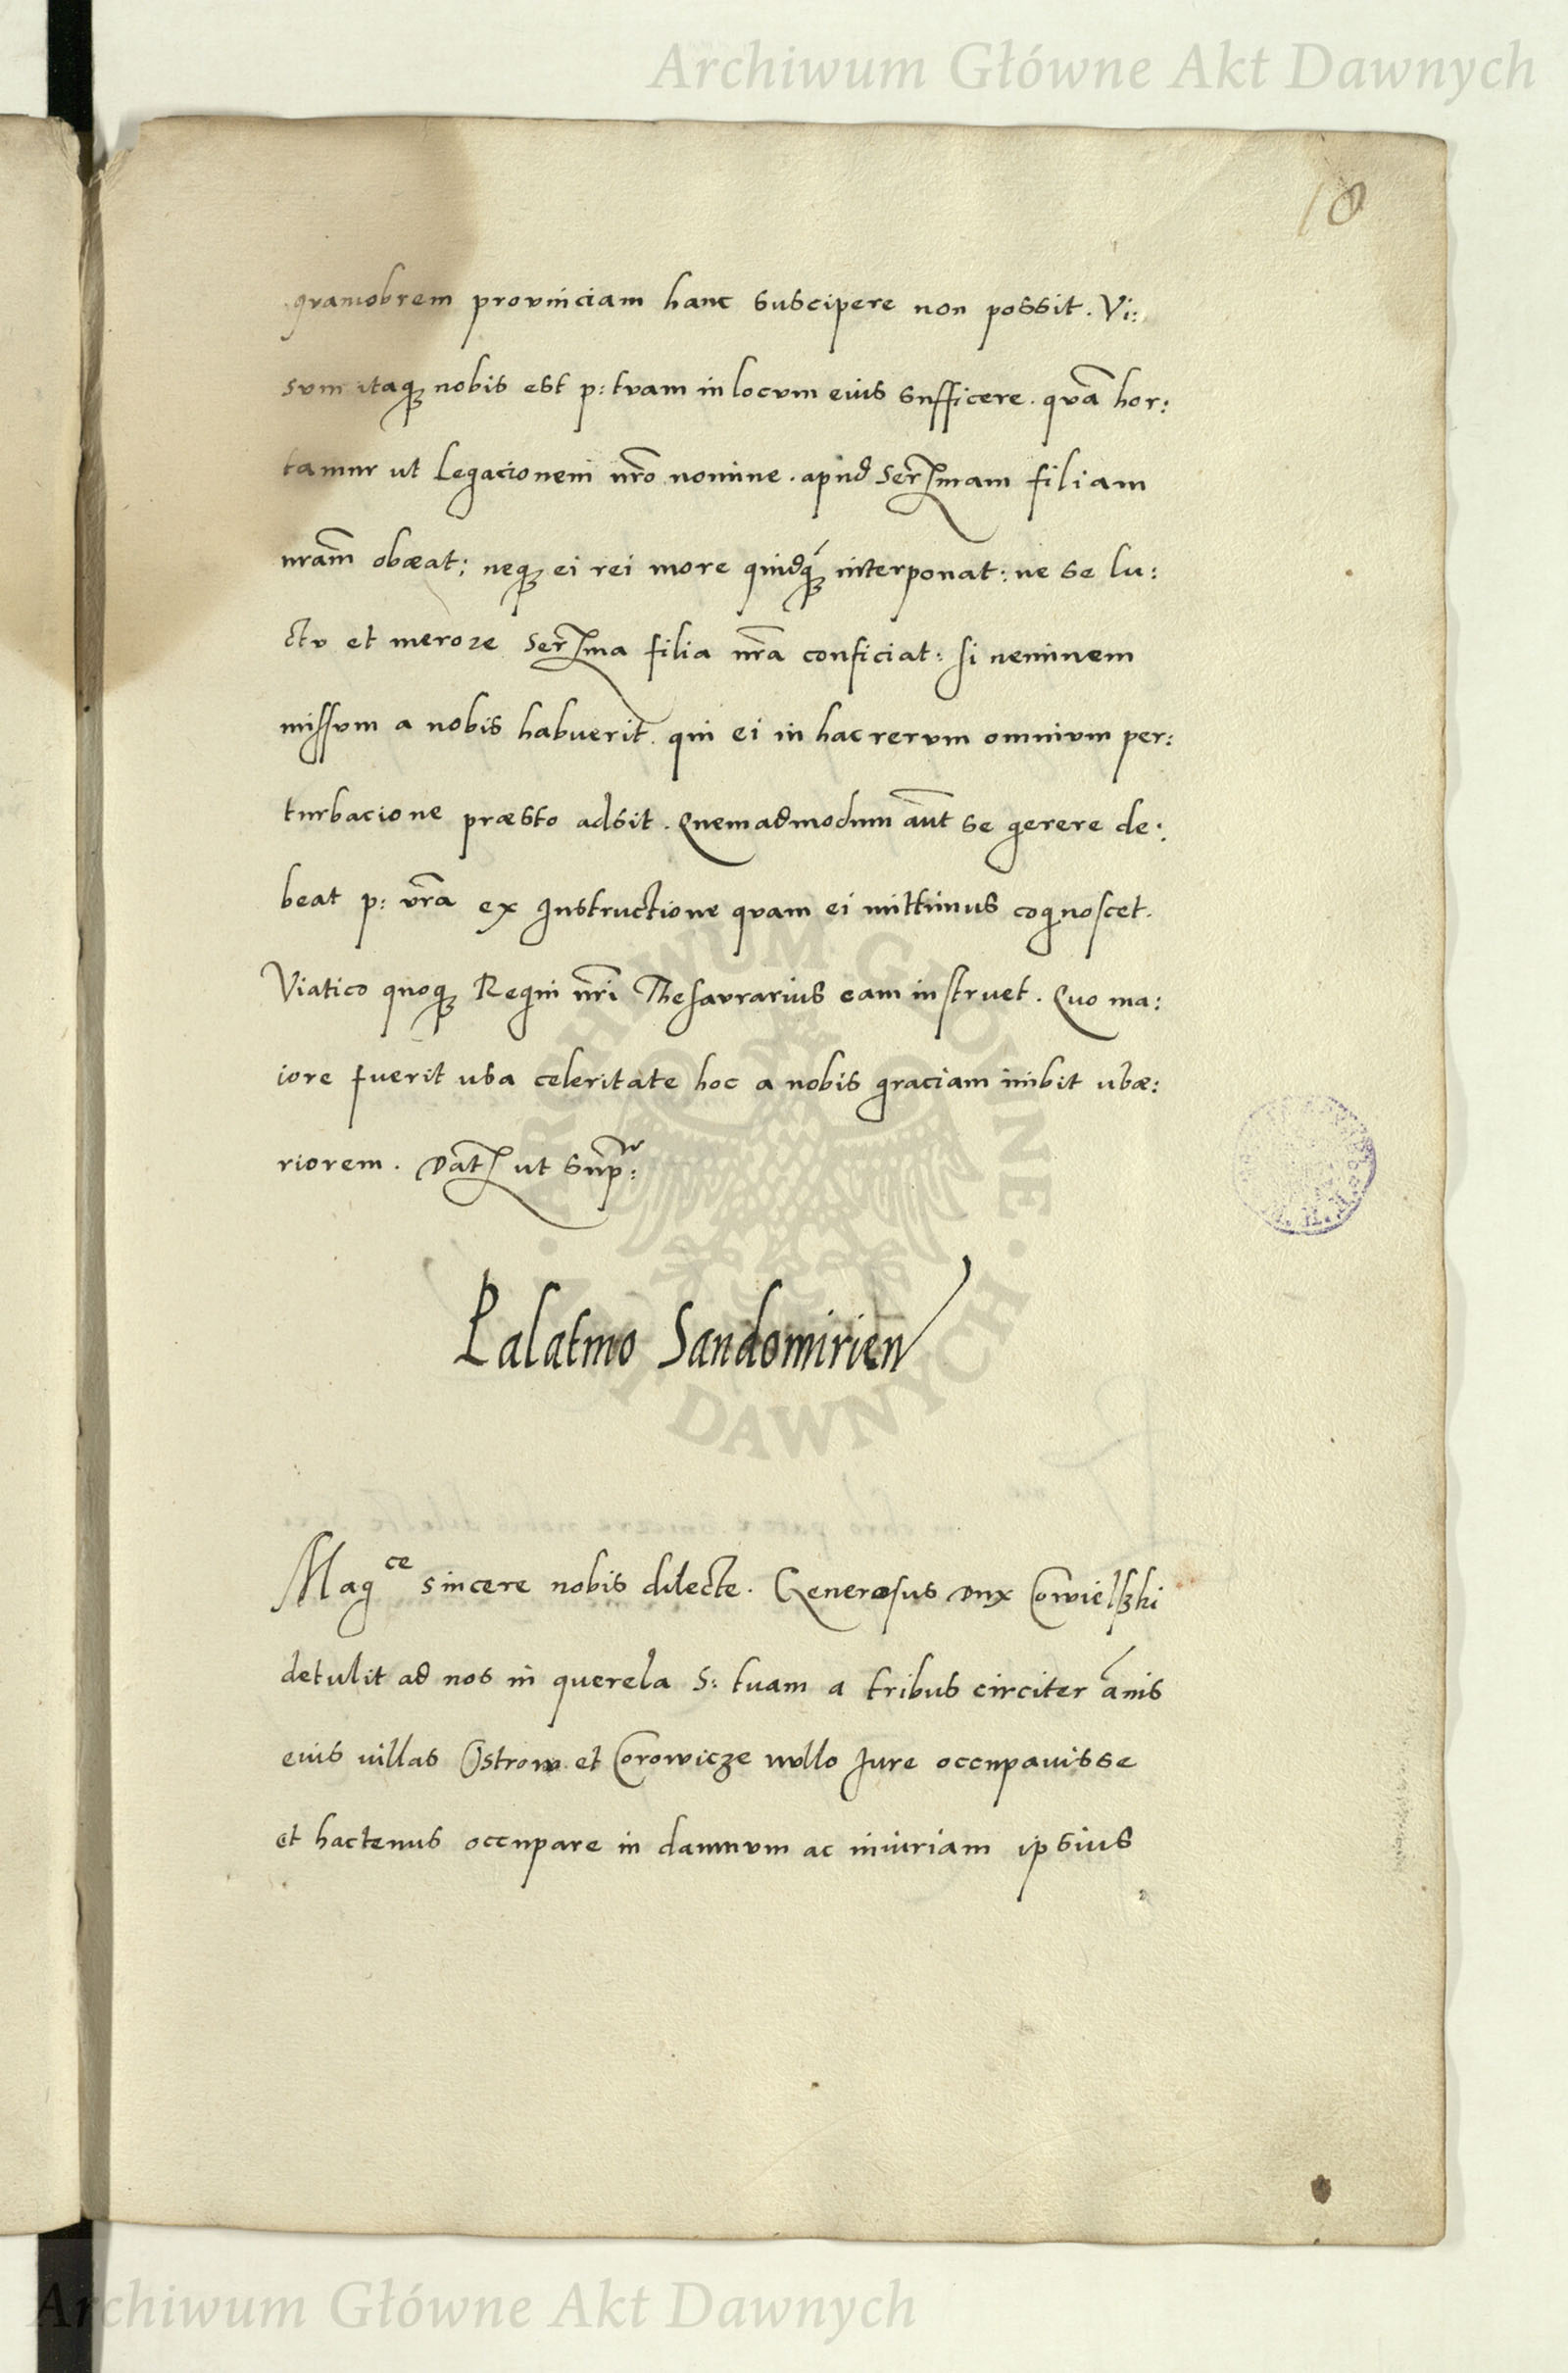 Archiwum Główne Akt Dawnych
10
quamobrem provinciam hanc suscipere non possit. Vi:
sum itaq₃ nobis est p: tuam in locum eius sufficere. quā hor:
tamur ut Legacionem nr̄o nomine. apud Serᷤmam filiam
nram̄ obæat; neq₃ ei rei more quidq́₃ interponat: ne se lu:
ctu et merore Serᷤma filia nr̄a conficiat: si neminem
missum a nobis habuerit. qui ei in hac rerum omnium per:
turbacione præsto adsit. Quemadmodum aūt se gerere de:
beat p: vr̄a ex Instructione quam ei mittimus cognoscet.
Viatico quoq₃ Regni nr̄i Thesaurarius eam instruet. Quo ma:
iore fuerit usa celeritate hoc a nobis graciam inibit ubæ:
riorem. Dat̄ ut sup̄:
Palatino Sandomirien
Magce sincere nobis dilecte. Generosus Dnx
detulit ad nos in querela S: tuam a tribus circiter ānis
eius villas Ostrow et Corowicze nullo Jure occupavisse
et hactenus occupare in damnum ac iniuriam ipsius
ARCHIWUM GŁÓWNE · AKT DAWNYCH ·
Archiwum Główne Akt Dawnych